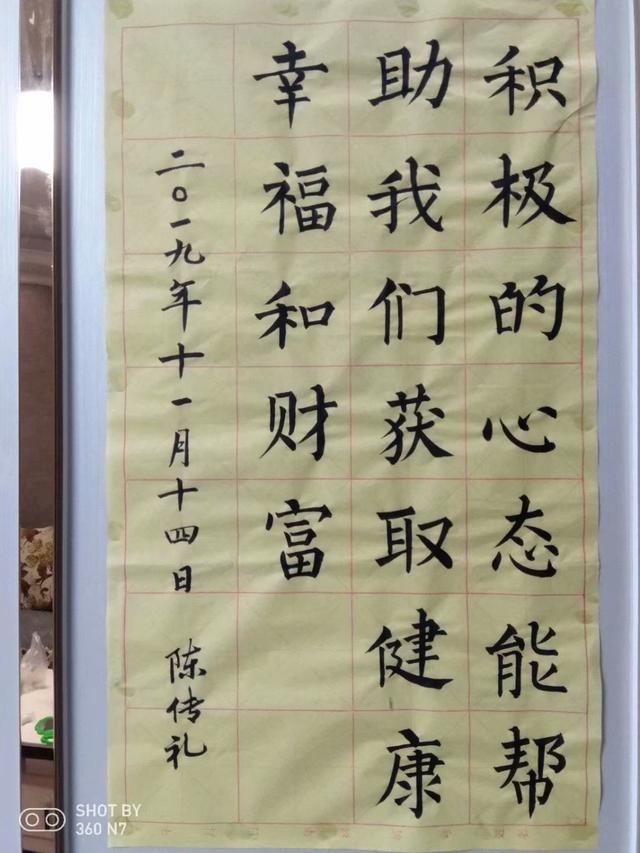 积极的心态能帮
助我们获取健康
幸福和财富
二〇一九年十一月十四日 陈传礼
SHOT BY
360 N7